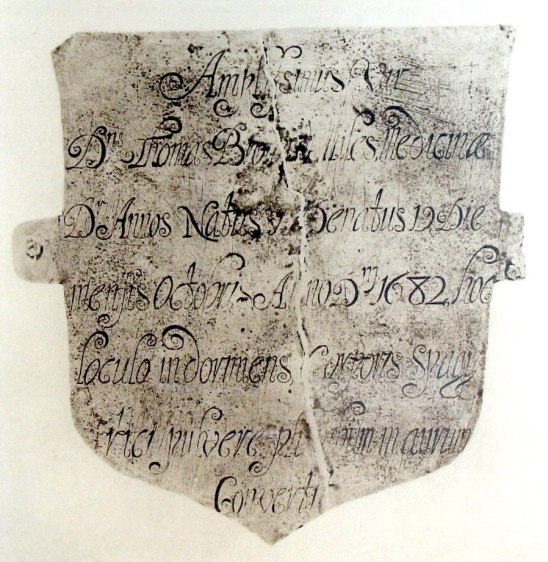 Amplissimus Vir
Dns Thomas Miles Medicinæ
Dr Annos Natus Denatus 19 Die
mensis Octobris Anno Dni 1682 hoc
loculo indormiens Corporis Spagy
rici pulvere in aurum
Converti